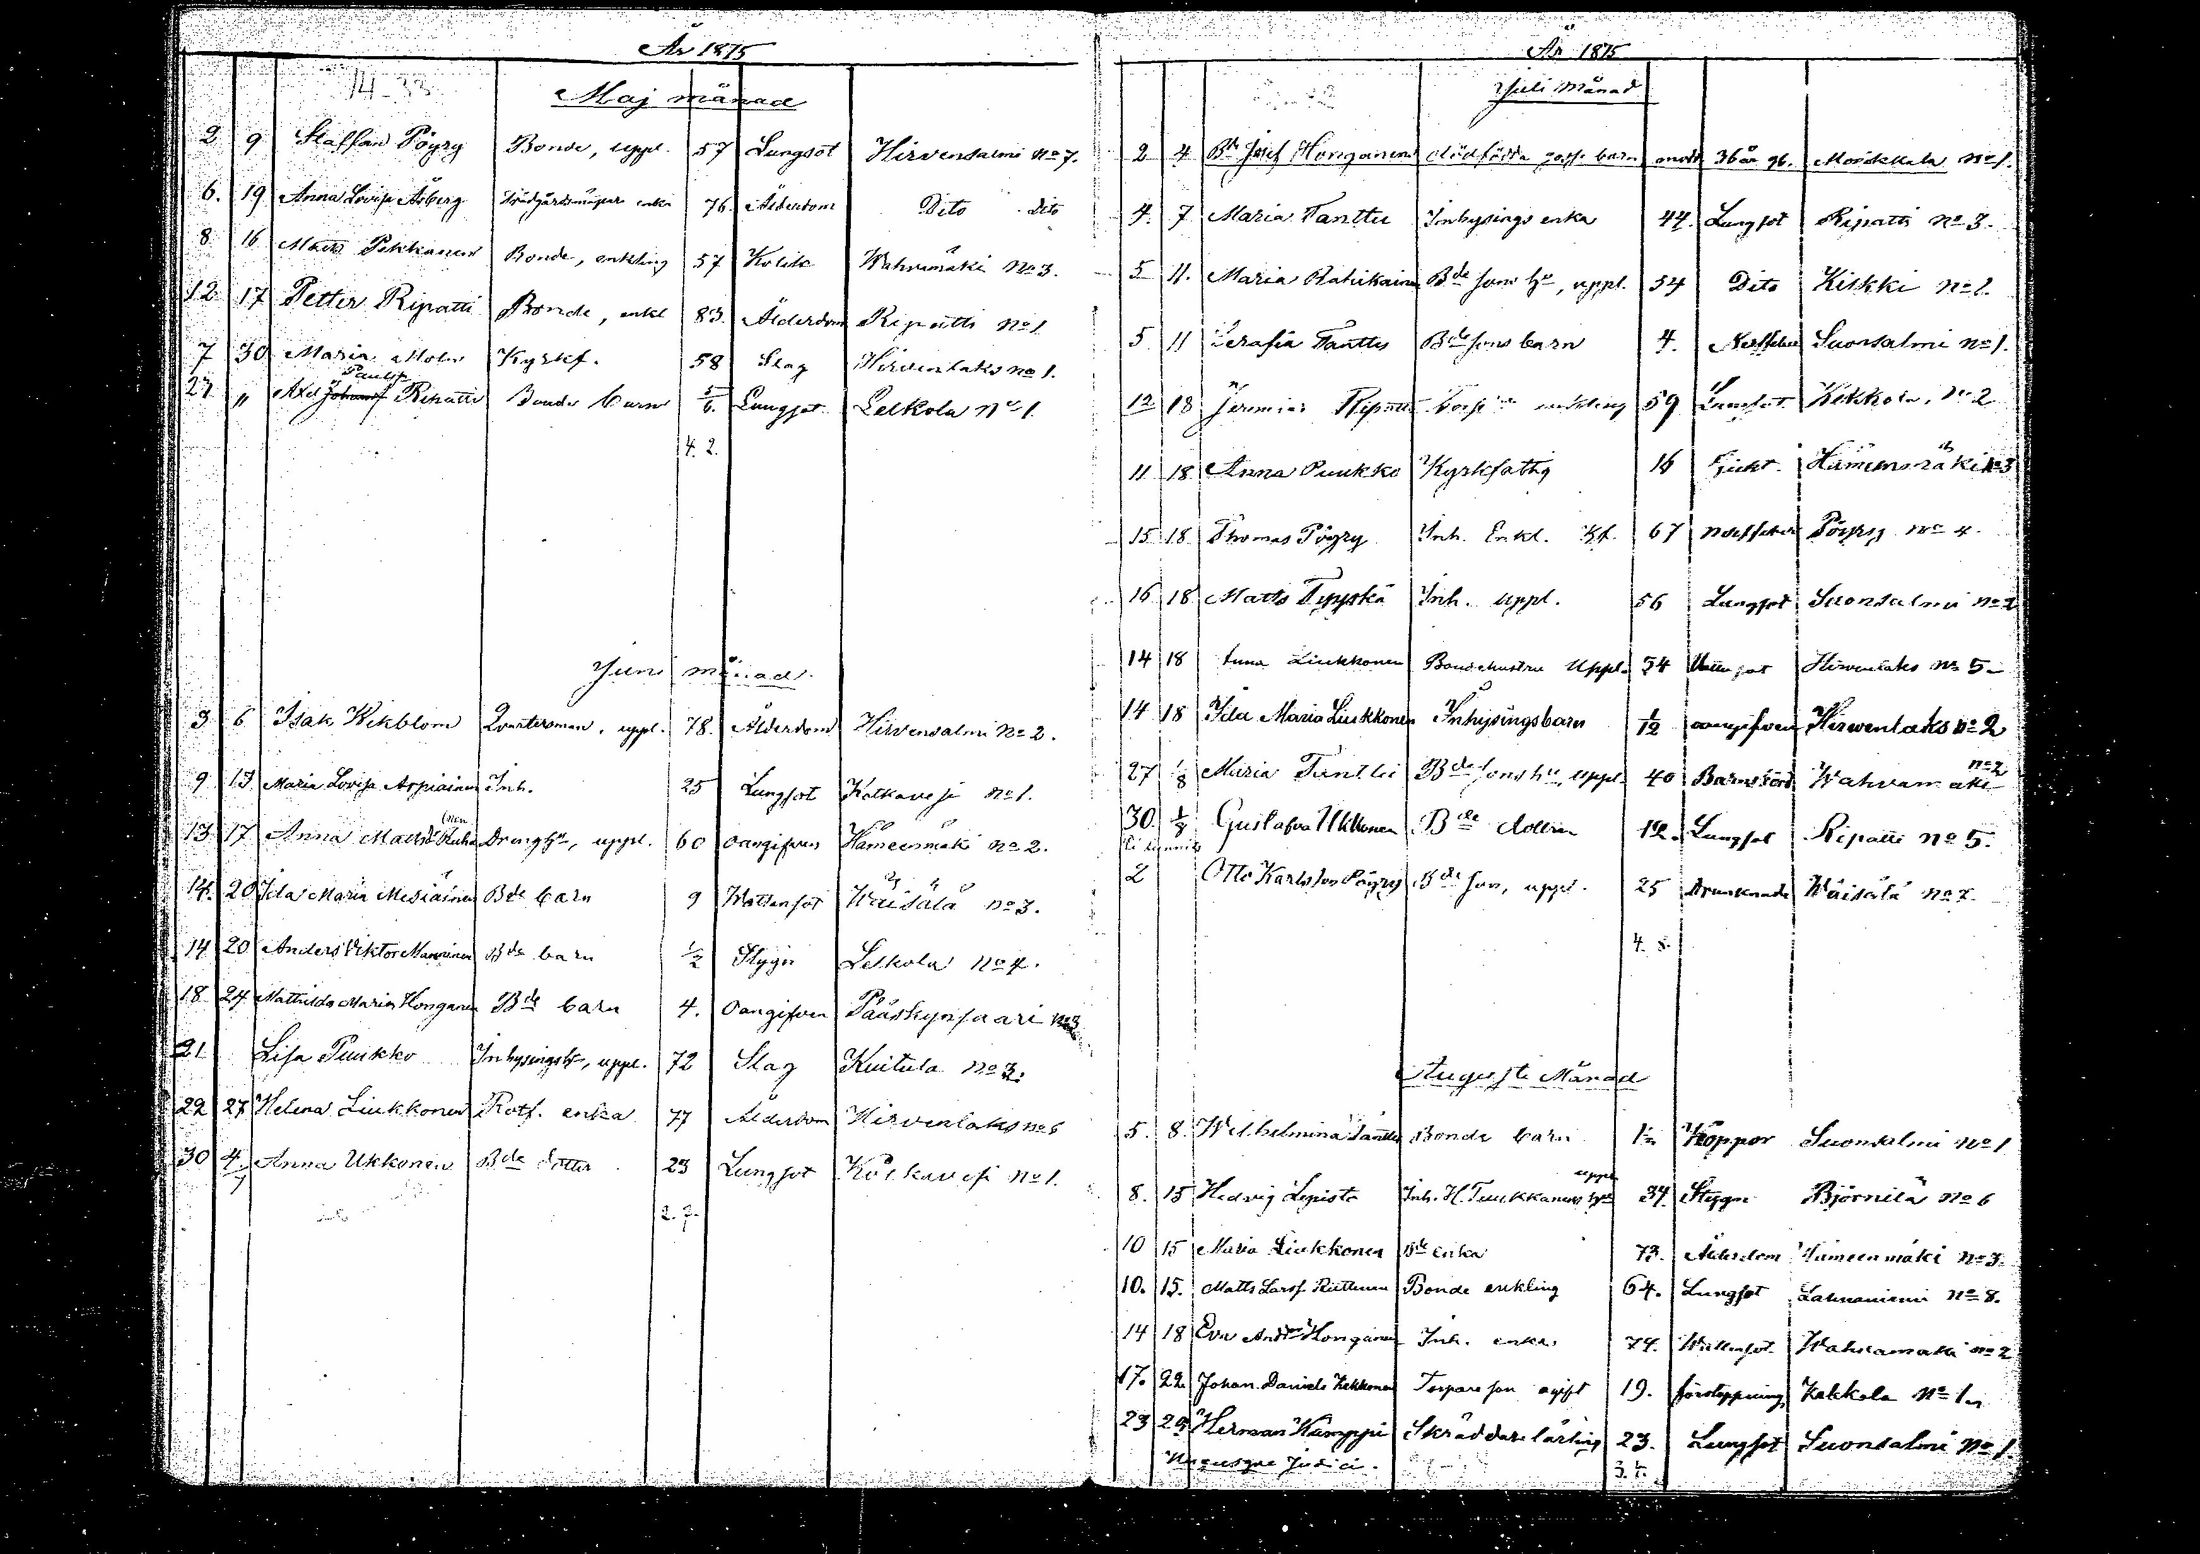 År 1875
Maj månad
2 9 Staffan Pöyry Bonde, uppl. 57 Lungsot Hirvensalmi No 7.
6. 19 Anna Lovisa Åberg enka 76 Ålderdom Dito dito
8 16 Matts Pekkanen Bonde, enkling 57 Kolik Wahvamäki No 3.
12 17 Petter Ripatti Bonde, enkl 83. Ålderdom Ripatti No 1.
7 30 Maria Molin Kyrkf. 58 Slag Hirvenlaks No 1.
Paulsf
27 " Axel Johansf Ripatti Bonde barn 5/6. Lungsot Lelkola No 1.
4. 2.
Juni månad.
3 6 Isak Wikblom uppl. 78. Ålderdom Hirvensalmi No 2.
9 13 Maria Lovisa Arpiainen Inh. 25 Lungsot Kotkavesi No 1.
13 17 Anna Dranghu, uppl. 60 oangifven Hämeenmäki No 2.
14. 20 Ida Maria Mesiäinen Bde barn 9 Wattensot Wäisälä No 3.
14 20 Anders Viktor Manninen Bde barn 1/2 Stygn Lelkola No 4.
18 24 Mathilda Maria Honganen Bde barn 4. oangifven Pääskynsaari No 3
21 Lisa Puukko Inhysingshu, uppl. 72 Slag Kuitula No 3.
22 27 Helena Liukkonen Rotf. enka 77 Ålderdom Hirvenlaks No 6
30 4/7 Anna Ukkonen Bde dotter 23 Lungsot Kotkavesi No 1.
2. 7.
År 1875
Juli Månad
2 4 Bde Josef Honganens dödfödda gosse barn modr 36 år Monikkala No 1.
4. 7 Maria Tanttu Inhysings enka 44. Lungsot Ripatti No 3.
5 11. Maria Rahikain Bde sons hu, uppl. 54 Dito Kiskki No 1.
5. 11 Serafia Tanttu Bde sons barn 4. Suonsalmi No 1.
12 18 Jeremias Ripatti enkling 59 Lungsot Kekkola, No 2
11 18 Anna Puukko Kyrkfattig 16 Gickt. Hämeenmäki No 3
15 18 Thomas Pöyry Inh. Enkl. Kf. 67 Pöyry No 4.
16 18 Matts Tyyskä Inh. uppl. 56 Lungsot Suonsalmi No 2
14 18 Anna Liukkonen Bondehustru Uppl. 54 Watten sot Hirvenlaks No 5
14 18 Ida Maria Liukkonen Inhysingsbarn 1/12 oangifven Hirvenlaks No 2
27 1/8 Maria Tanttu Bde sons hu, uppl. 40 Barnsbörd Wahvamäki No 2
30. 1/8 Gustafva Ukkonen Bde dotter 12. Lungsot Ripatti No 5.
2 Otto Karlsson Pöyry Bde son, uppl. 25 Drunknade Wäisälä No 7.
4. 8.
Augusti Månad
5. 8. Wilhelmina Tanttu Bonde barn 1 1/2 Koppor Suonsalmi No 1
8. 15 Hedvig Lepistö Inh. H. Tuukkanens hu uppl 34. Stygn Björnilä No 6
10 15 Maria Liukkonen Bde enka 73. Ålderdom Hämeenmäki No 3.
10. 15. Matts Larsf Bonde enkling 64. Lungsot Lahnaniemi No 8.
14 18 Eva Honganen Inh. enka 74. Wattensot. Wahvamäki No 2
17. 22. Johan Daniels Kekkonen Torpare son ogift 19. förstoppning Kekkola No 1.
23 29 Herman Kamppi Skräddare lärling 23. Lungsot Suonsalmi No 1.